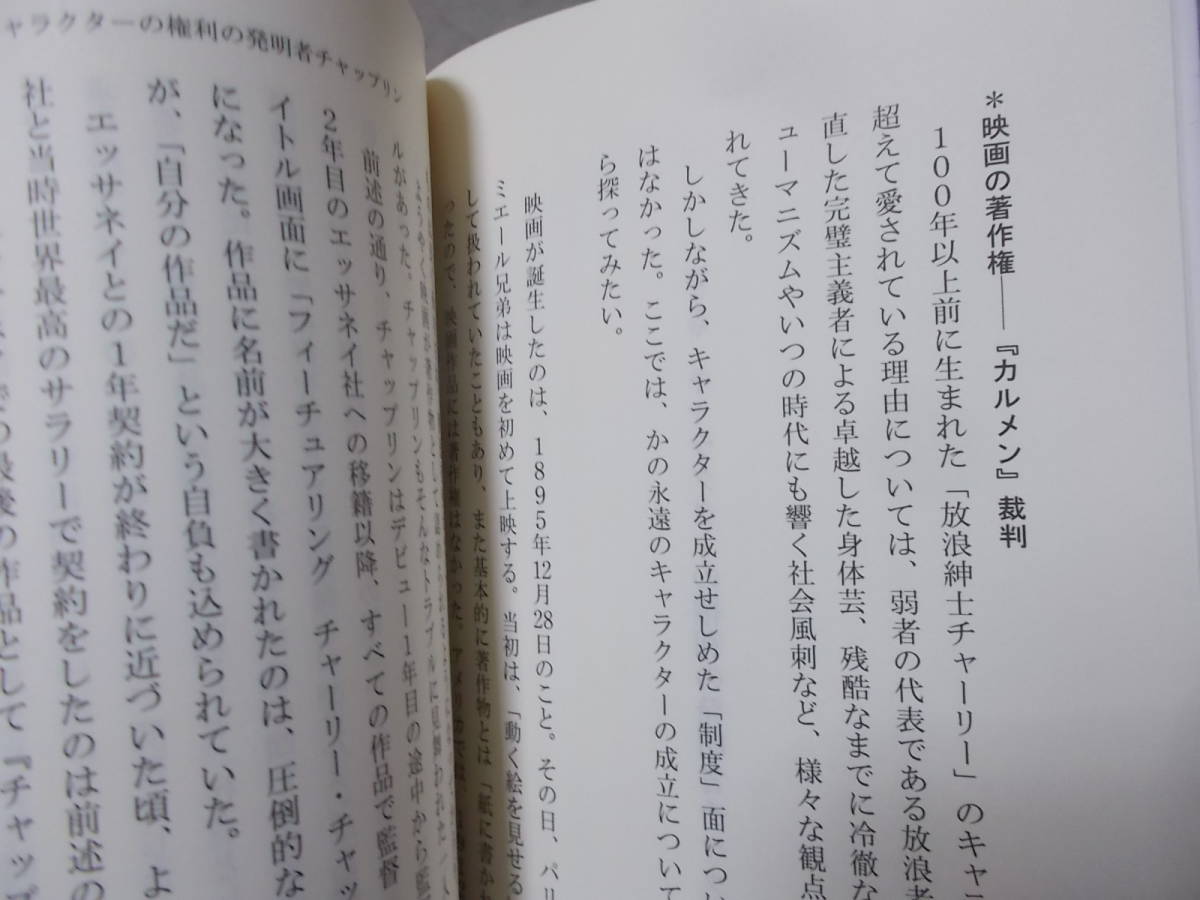 ＊映画の著作権――『カルメン』裁判
100年以上前に生まれた「放浪紳士チャーリー」のキャラ
超えて愛されている理由については、弱者の代表である放浪者
直した完璧主義者による卓越した身体芸、残酷なまでに冷徹な
ューマニズムやいつの時代にも響く社会風刺など、様々な観点
れてきた。
しかしながら、キャラクターを成立せしめた「制度」面につい
はなかった。ここでは、かの永遠のキャラクターの成立について
ら探ってみたい。
映画が誕生したのは、1895年12月28日のこと。その日、パリ
ミエール兄弟は映画を初めて上映する。当初は、「動く絵を見せる
して扱われていたこともあり、また基本的に著作物とは「紙に書か
ったので、映画作品には著作権はなかった。
ャラクターの権利の発明者チャップリン
ルがあった。チャップリンもそんなトラブルに見舞われた一人
前述の通り、チャップリンはデビュー1年目の途中から監
2年目のエッサネイ社への移籍以降、すべての作品で監督
イトル画面に「フィーチュアリング　チャーリー・チャッ
になった。作品に名前が大きく書かれたのは、圧倒的な
が、「自分の作品だ」という自負も込められていた。
エッサネイとの1年契約が終わりに近づいた頃、よ
社と当時世界最高のサラリーで契約をしたのは前述の
最後の作品として『チャップ